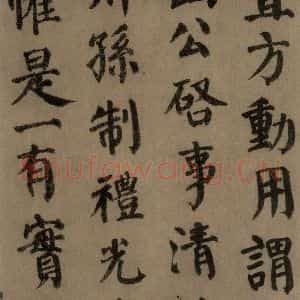 直方動用謂
公啓事清
孫制禮光
惟是一有實
shufawang.cn